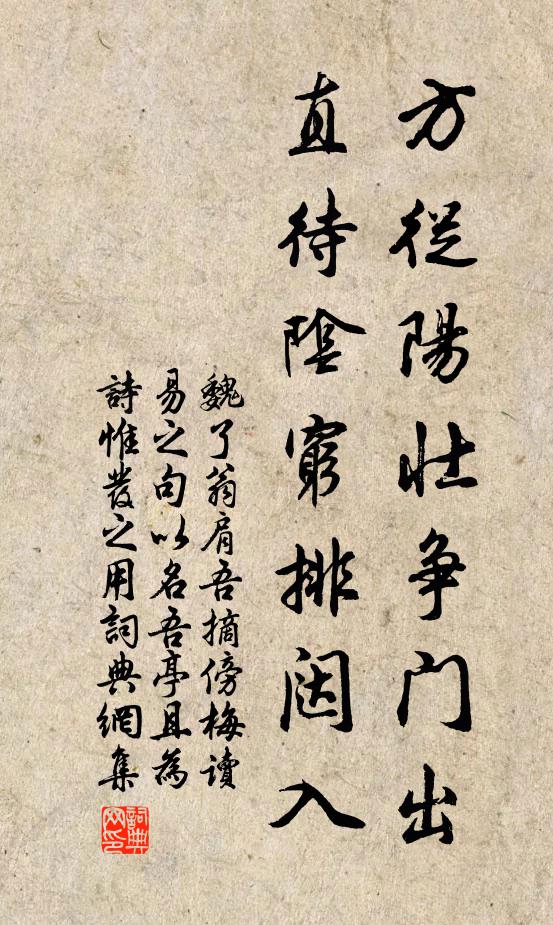 方從陽壯争门出
直待陰窮排闼入
魏了翁肩吾摘傍梅讀
易之句以名吾亭且為
詩惟發之用詞典網集
詞典
网印